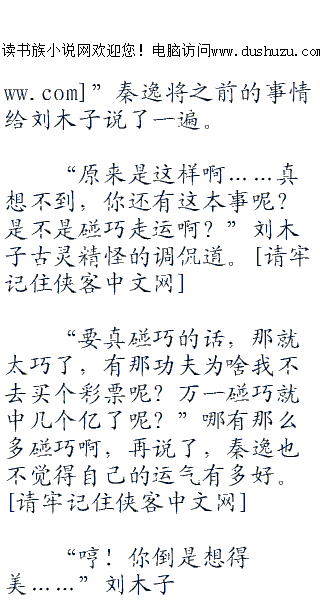 读书族小说网欢迎您！电脑访问www.dushuzu.com
ww.com]”秦逸将之前的事情
给刘木子说了一遍。
“原来是这样啊……真
想不到，你还有这本事呢？
是不是碰巧走运啊？”刘木
子古灵精怪的调侃道。[请牢
记住侠客中文网]
“要真碰巧的话，那就
太巧了，有那功夫为啥我不
去买个彩票呢？万一碰巧就
中几个亿了呢？”哪有那么
多碰巧啊，再说了，秦逸也
不觉得自己的运气有多好。
[请牢记住侠客中文网]
“哼！你倒是想得
美……”刘木子